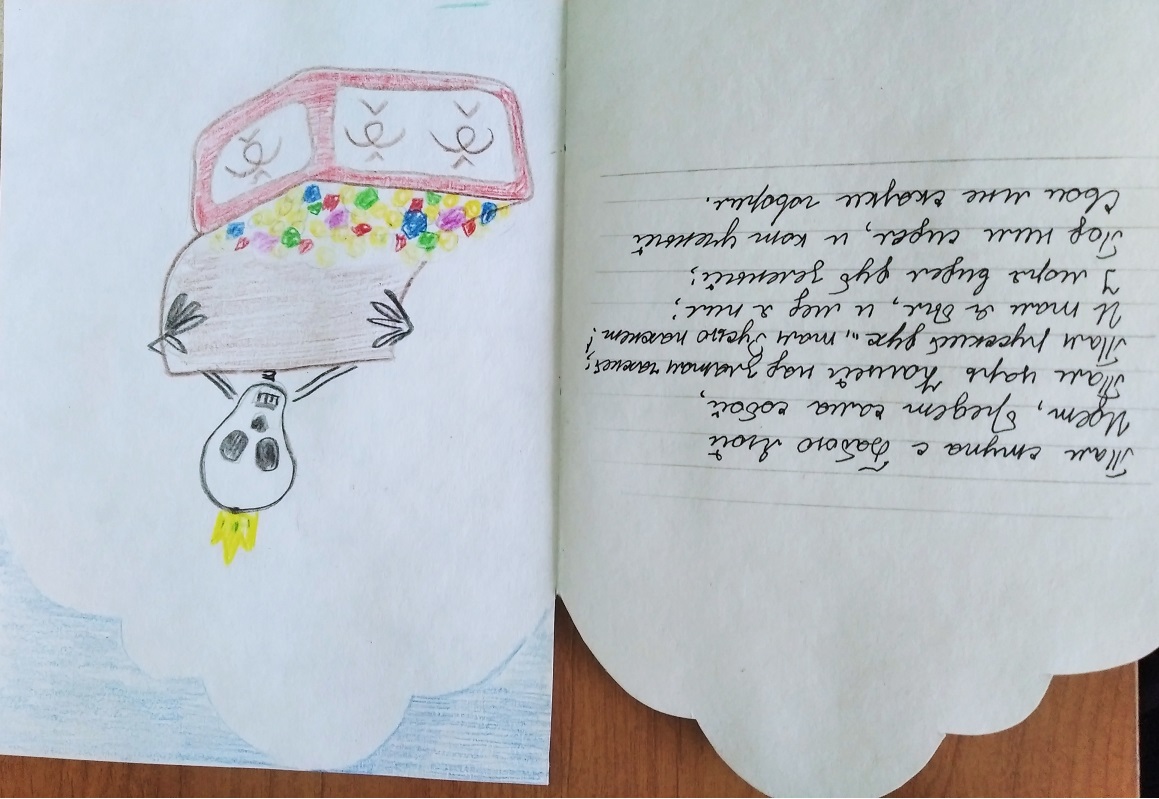 Там ступа с Бабою Ягой
Идет, бредет сама собой,
Там царь Кащей над златом чахнет;
Там русский дух... там Русью пахнет!
И там я был, и мед я пил;
У моря видел дуб зеленый;
Под ним сидел, и кот ученый
Свои мне сказки говорил.